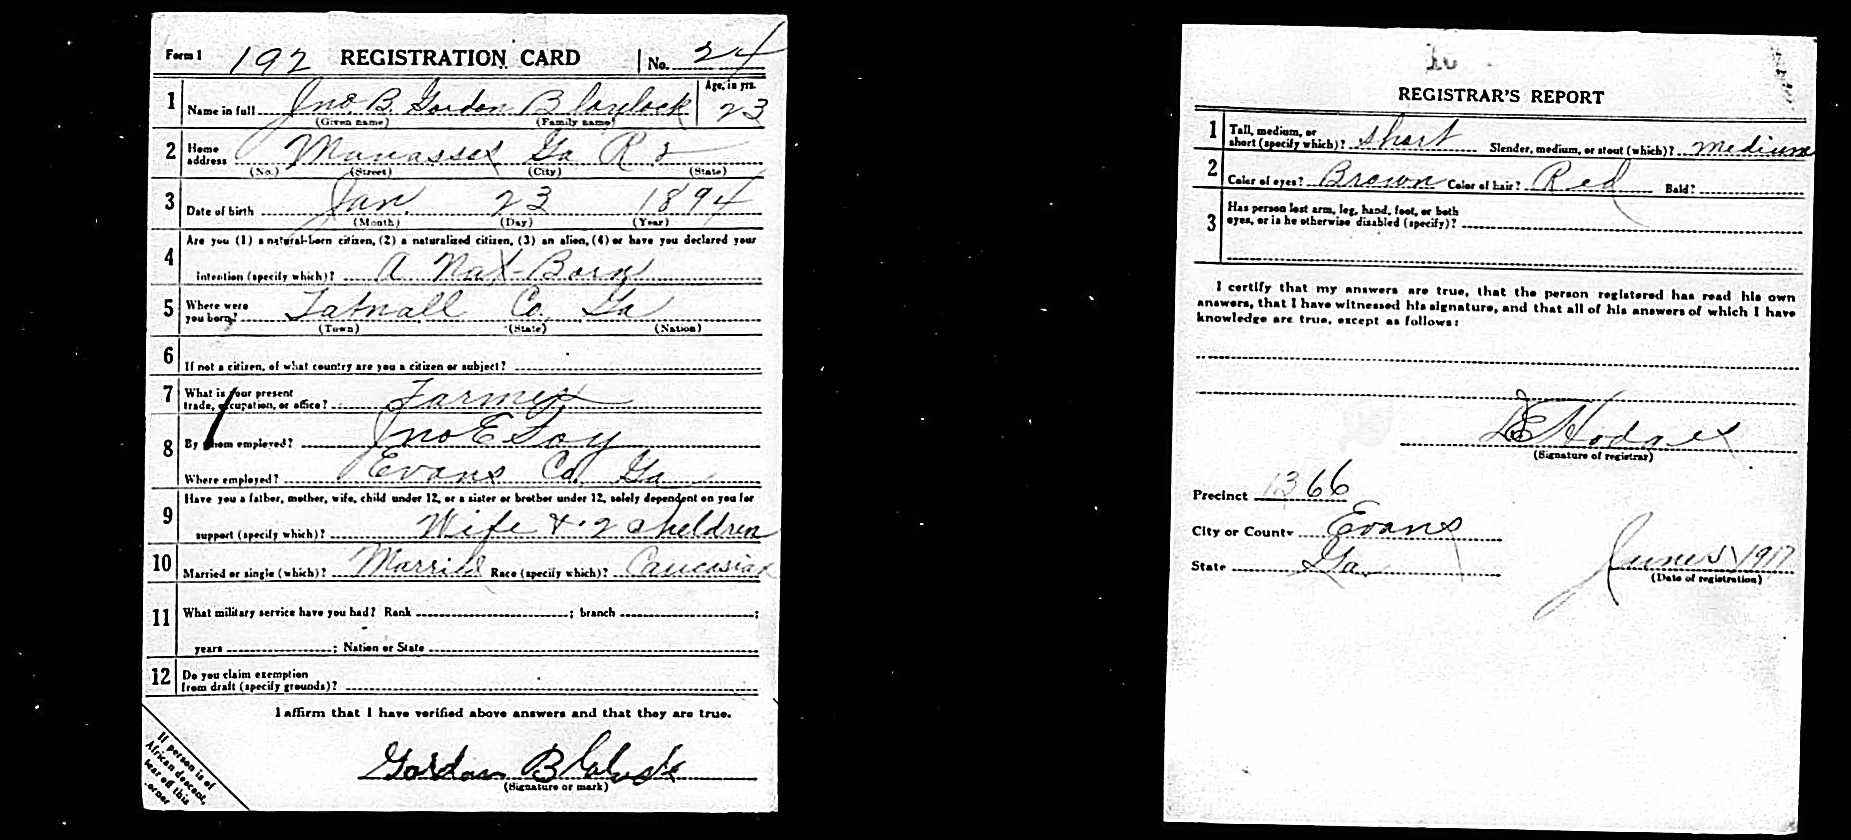 Form 1 192 REGISTRATION CARD No. 24
1 Name in full Jno B. Gordon Blaylock Age, in yrs. 23
(Given name) (Family name)
2 Home address Manassas Ga R 2
(No.) (Street) (City) (State)
3 Date of birth Jan. 23 1894
(Month) (Day) (Year)
4 Are you (1) a natural-born citizen, (2) a naturalized citizen, (3) an alien, (4) or have you declared your
intention (specify which)? A Nat-Born
5 Where were you born? Tatnall Co. Ga
(Town) (State) (Nation)
6 If not a citizen, of what country are you a citizen or subject?
7 What is your present trade, occupation, or office? Farmer
8 By whom employed? Jno E Foy
Where employed? Evans Co. Ga
9 Have you a father, mother, wife, child under 12, or a sister or brother under 12, solely dependent on you for
support (specify which)? Wife & 2 Children
10 Married or single (which)? Married Race (specify which)? Caucasian
11 What military service have you had? Rank ; branch ;
years ; Nation or State
12 Do you claim exemption
from draft (specify grounds)?
I affirm that I have verified above answers and that they are true.
Gordon
(Signature or mark)
If person is of
African descent,
tear off this
corner
REGISTRAR'S REPORT
1 Tall, medium, or short (specify which)? Short Slender, medium, or stout (which)? Medium
2 Color of eyes? Brown Color of hair? Red Bald?
3 Has person lost arm, leg, hand, foot, or both
eyes, or is he otherwise disabled (specify)?
I certify that my answers are true, that the person registered has read his own
answers, that I have witnessed his signature, and that all of his answers of which I have
knowledge are true, except as follows:
DE Hodges
(Signature of registrar)
Precinct 1366
City or County Evans
State Ga. June 5 1917
(Date of registration)